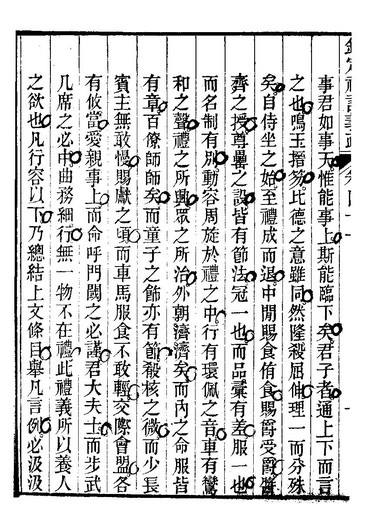 欽定禮記義疏
事君如事天惟能事上斯能臨下矣君子者通上下而言
之也鳴玉搢笏比德之意雖同然隆殺屈伸理一而分殊
矣自侍坐之始至禮成而退中閒賜食侑食賜爵受爵醬
齊之授尊罍之設皆有節法冠一也而品彚有差服一也
而名制有別動容周旋於禮之中行有環佩之音車有鸞
和之聲禮之所興眾之所治外朝濟濟矣而內之命服皆
有章百僚師師矣而童子之節亦有節殽核之微而少長
賓主無敢慢賜獻之頃而車馬服食不敢輕交際會盟各
有攸當愛親事上而命呼門闑之必謹君大夫士而步武
几席之必中曲務細行無一物不在禮此禮義所以養人
之欲也凡行容以下乃總結上文條目舉凡言例必汲汲